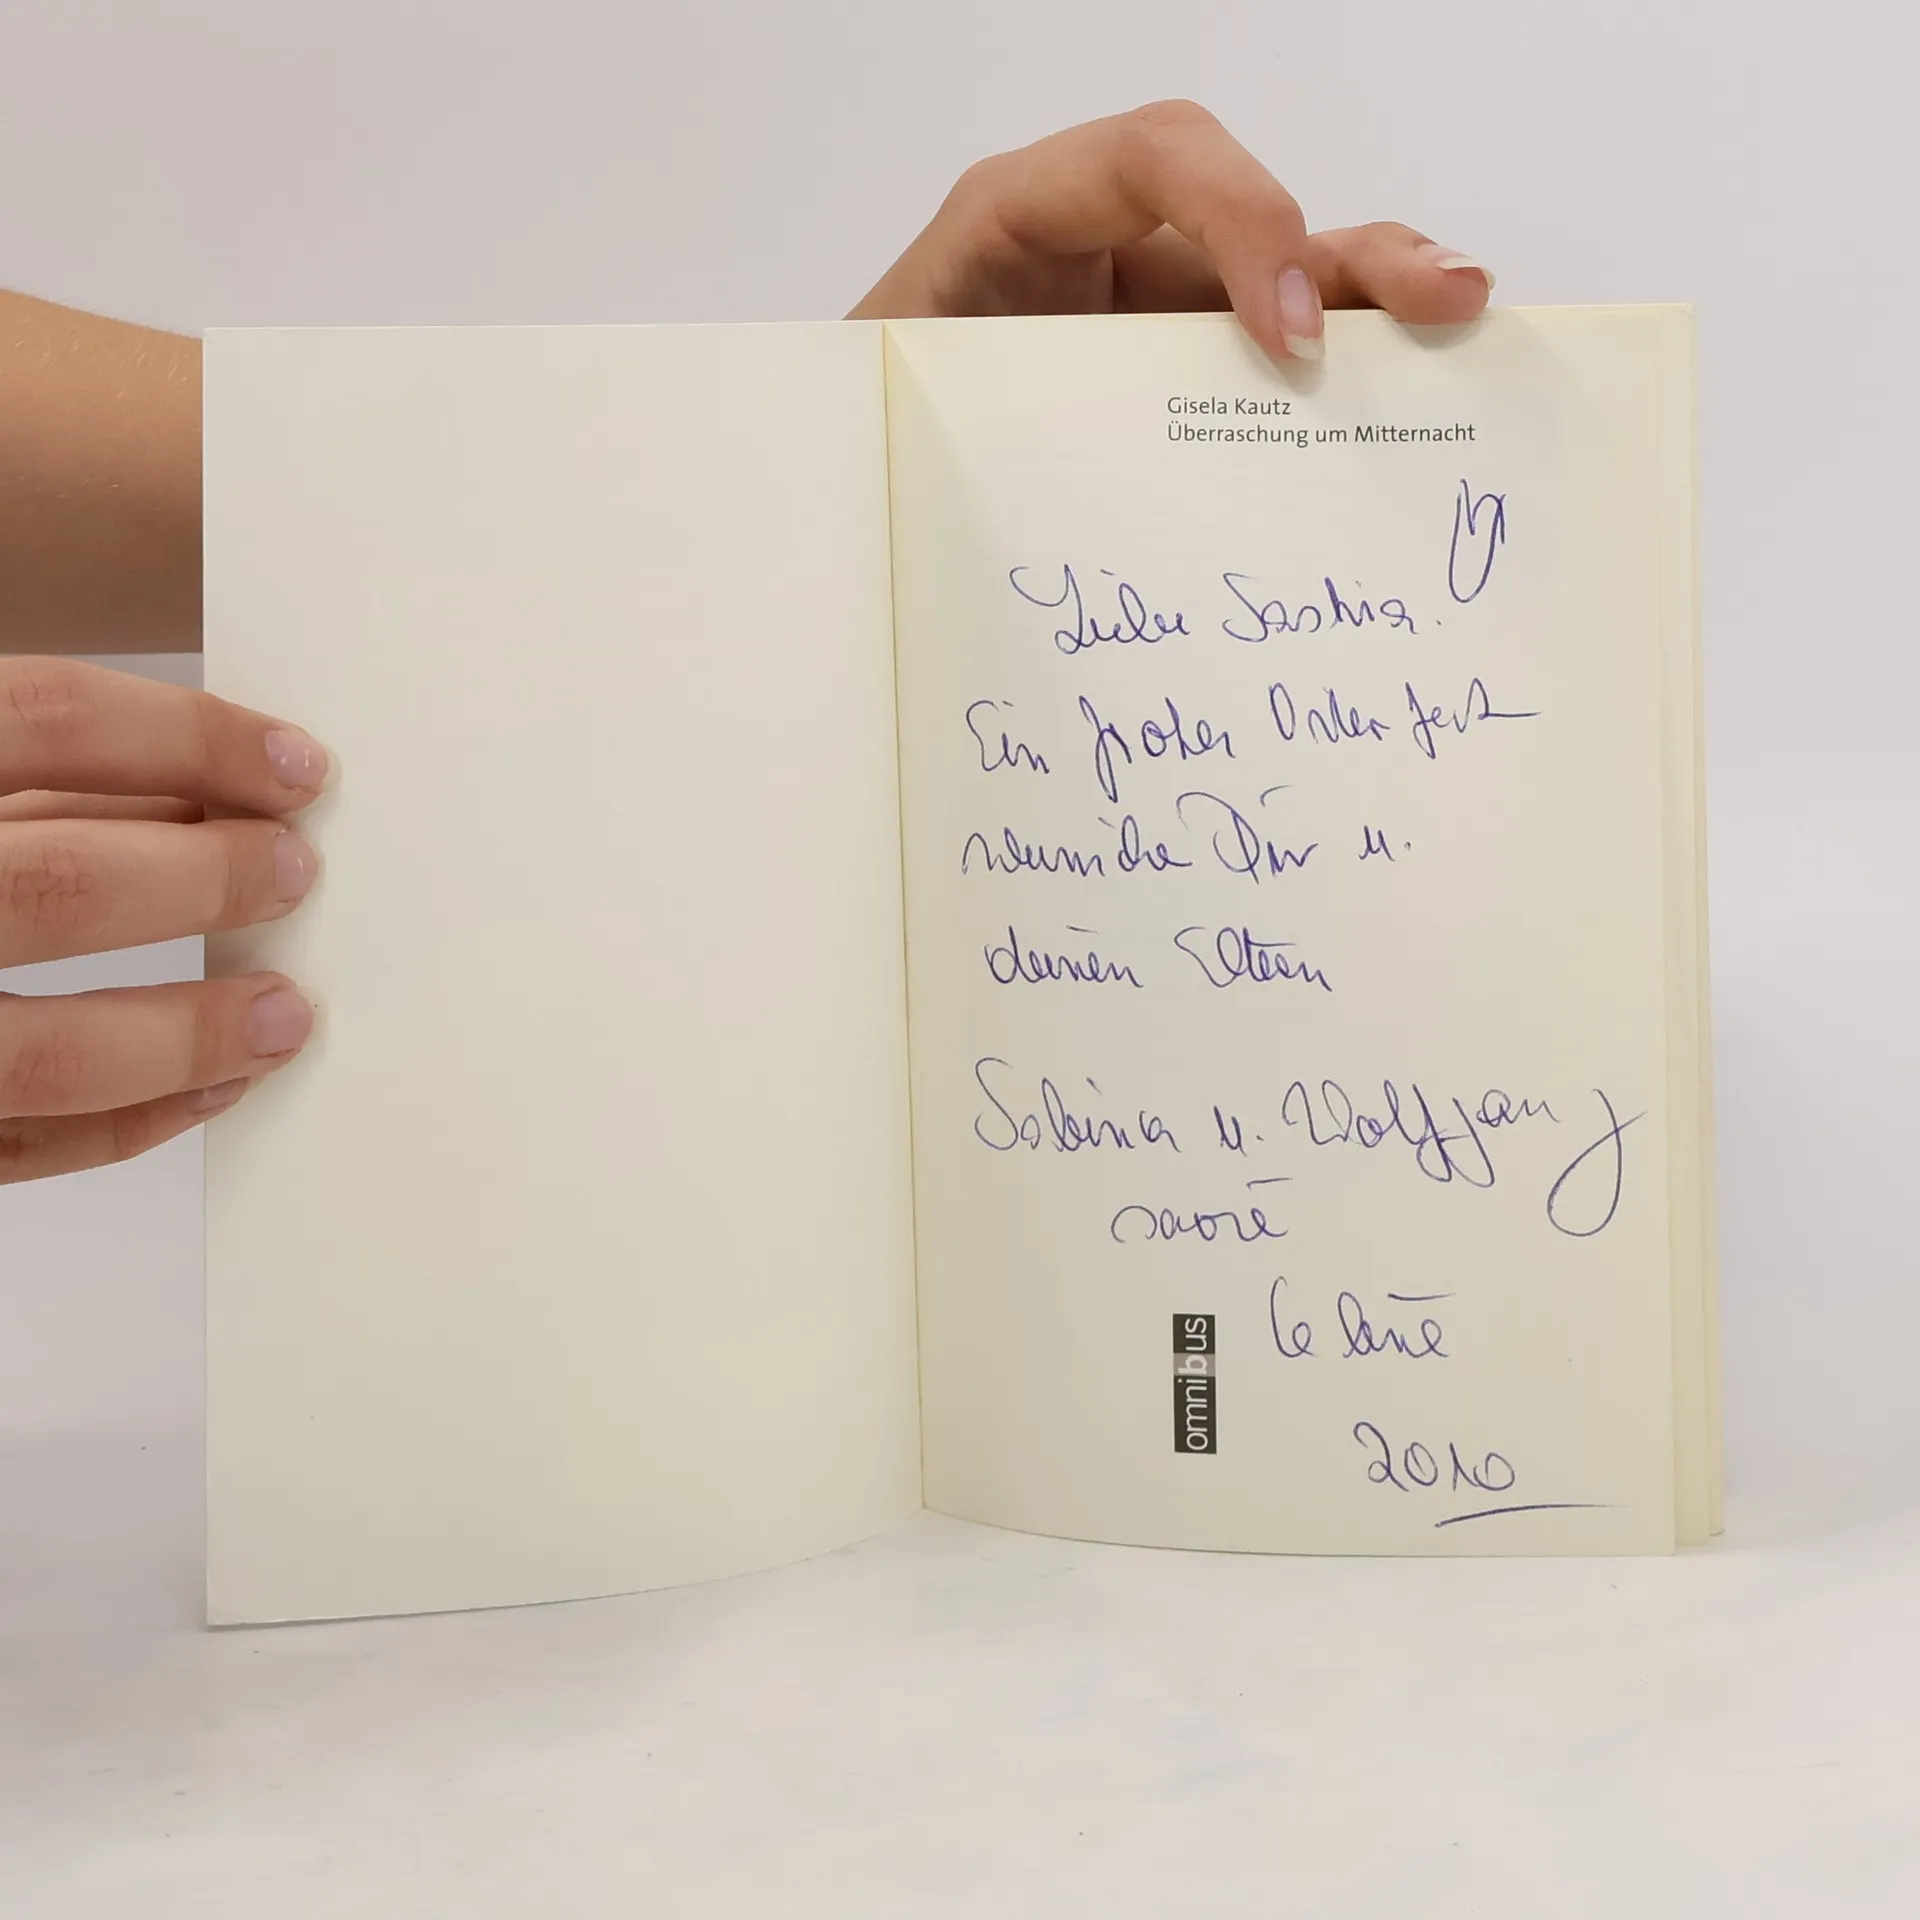 Gisela Kautz
Überraschung um Mitternacht
Liebe Saskia.
Ein frohes Osterfest
wünsche Dir u.
deinen Eltern
Sabina u. Wolfgang
sowie
2010
omnibus